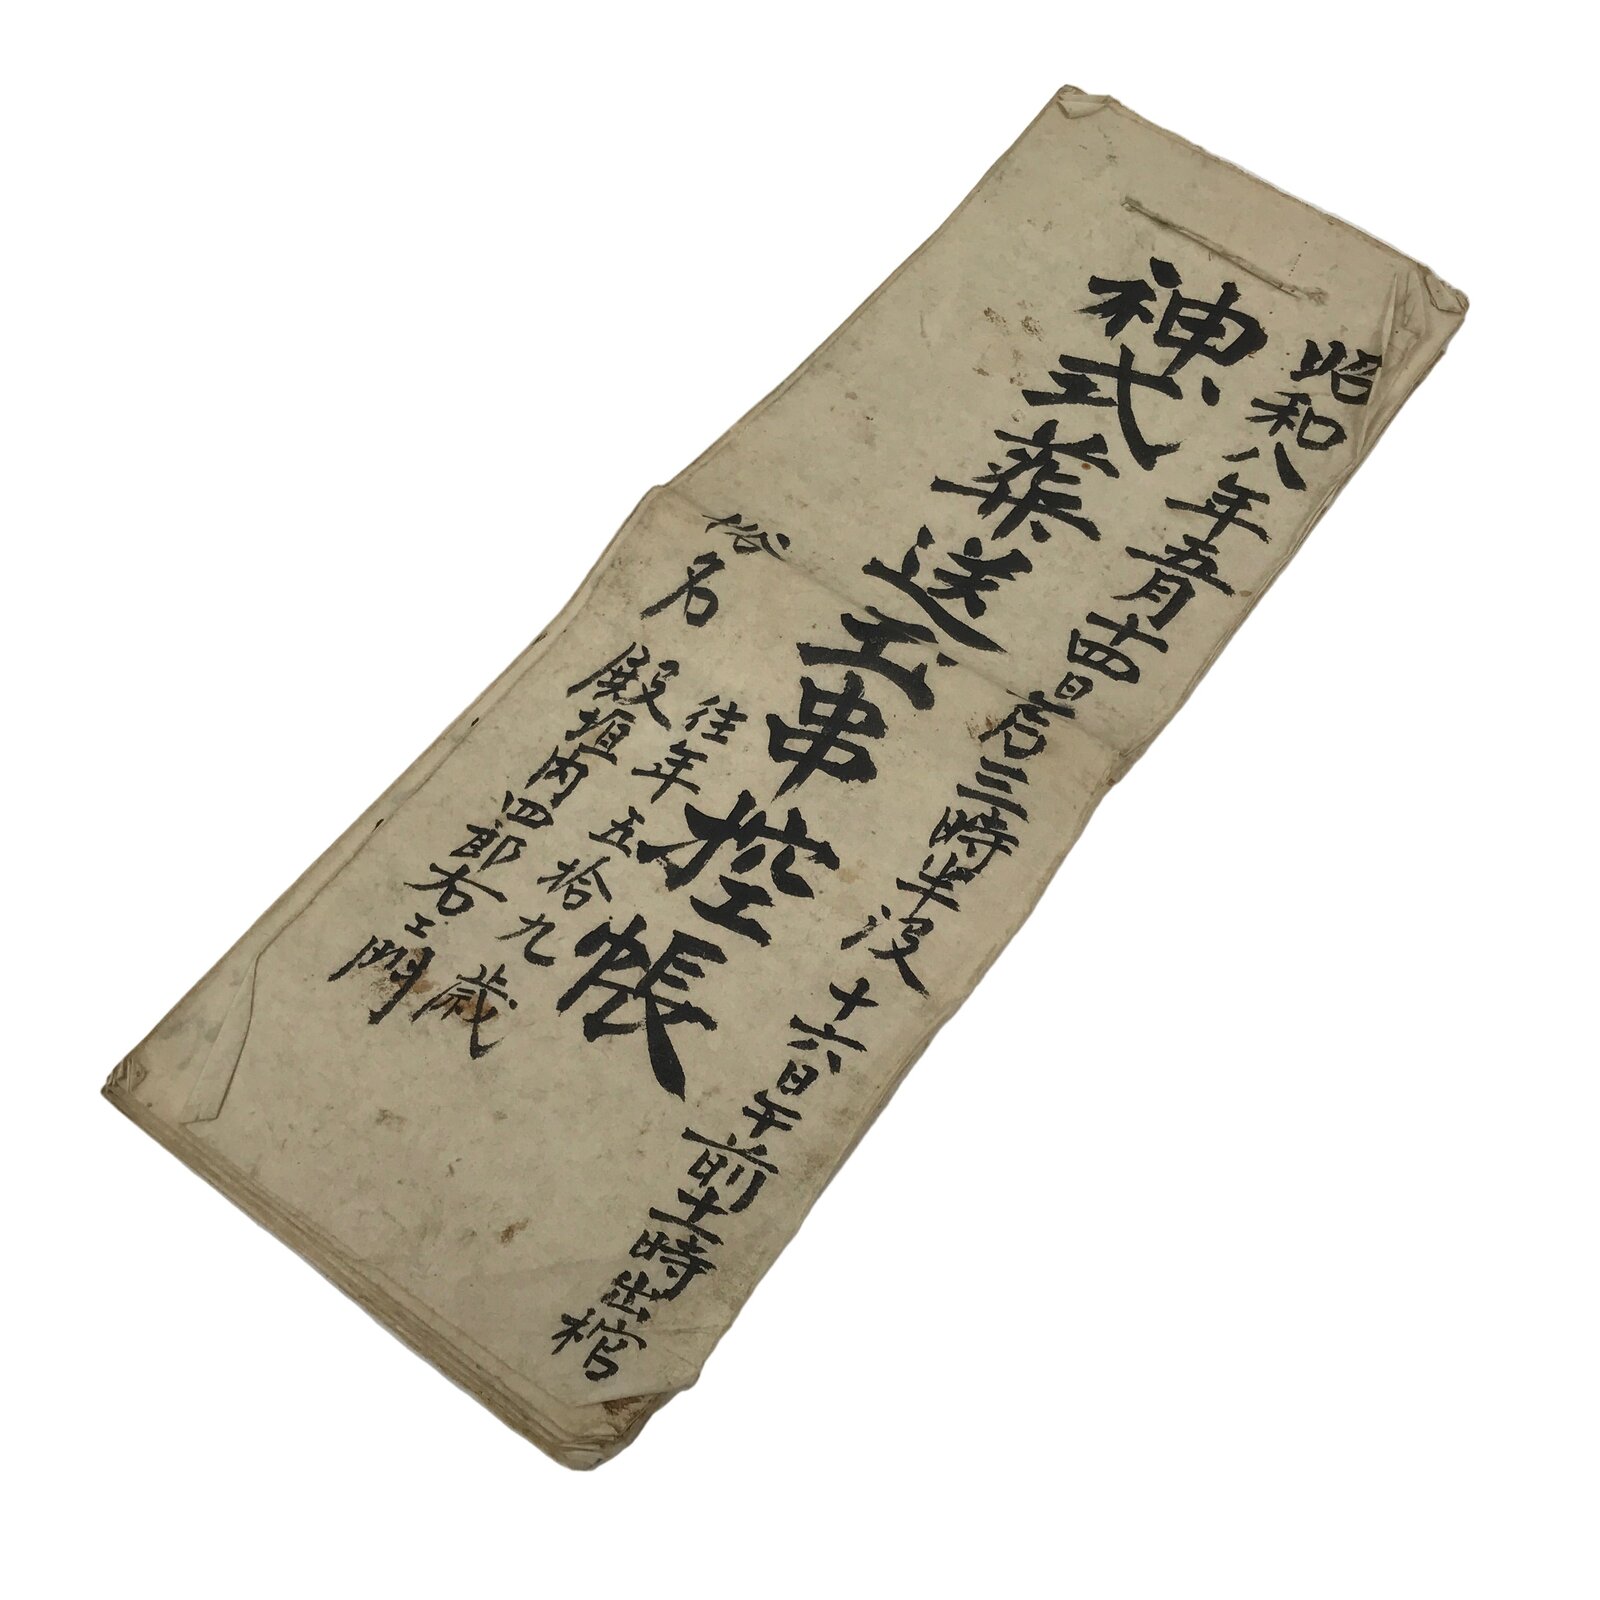 昭和八年五月十四日后三時半没 十六日午前十一時出棺
神式葬送玉串控帳
俗名 殿垣内四郎右エ門
往年五拾九歳